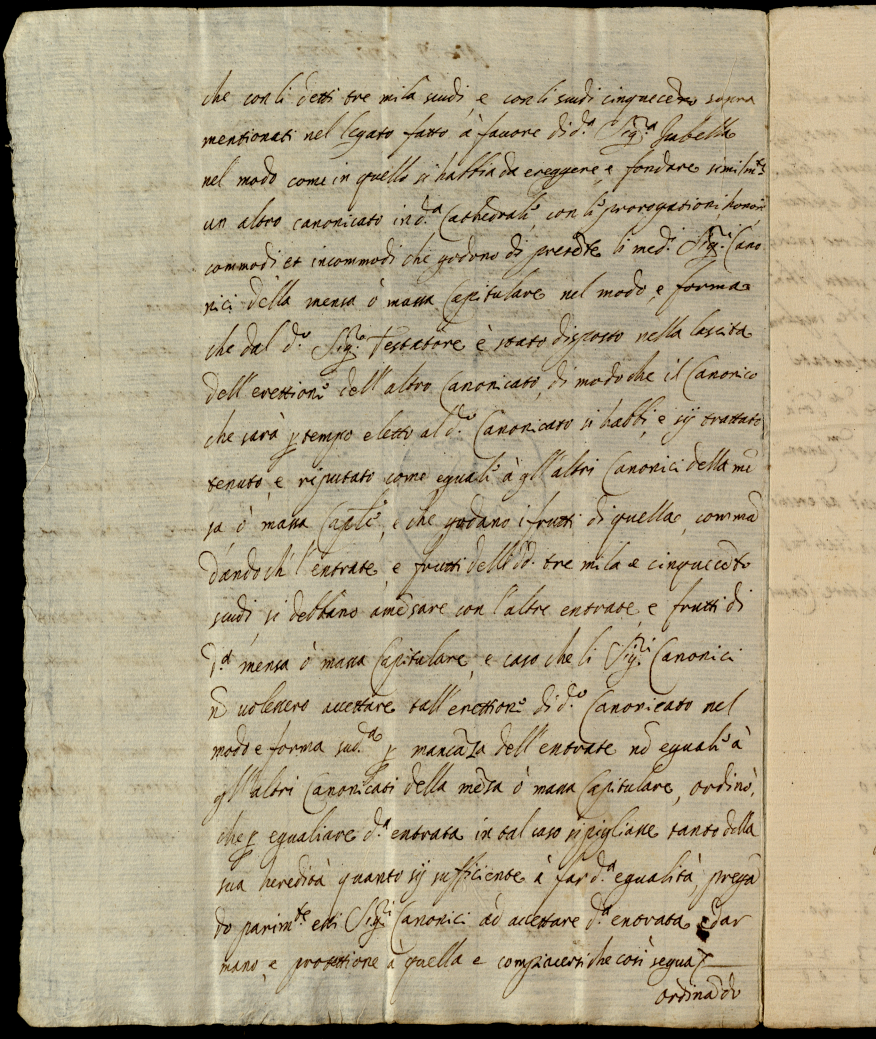 che con li detti tre mila scudi, e con li scudi cinquecento sopra
mentionati nel legato fatto à favore di d.ª Sig.ª Isabella
nel modo come in quello si habbia da ereggere, e fondare similm.te
un altro canonicato in d.ª Cathedrale, con le prorogationi, honori
commodi et incommodi che godono di presẽte li med.i Sig.ri Cano
nici della mensa ò massa Capitulare nel modo, e forma
che dal d.º Sig.re Testatore è stato disposto nella lascita
dell'erettione dell'altro Canonicato, di modo che il Canonico
che sarà p tempo eletto al d.º Canonicato si habbi, e sij trattato
tenuto, e riputato come eguale à gl'altri Canonici della mẽ
sa, ò massa Caplẽ, e che godano i frutti di quella, commã
dando che l'entrate, e frutti delli dd. tre mila e cinquecẽto
scudi si debbano amẽsare con l'altre entrate, e frutti di
d.ª mensa ò massa Capitulare, e caso che li Sig.ri Canonici
nõ volessero accettare tall'erettione di d.º Canonicato nel
modo e forma sud.ª p mancãza dell'entrate nõ eguale à
gl'altri Canonicati della mẽsa ò massa Capitulare, ordinò,
che p egualiare d.ª entrata in tal caso si pigliasse tanto della
sua heredità quanto sij sufficiente à far d.ª egualità, pregã
do parim.te essi Sig.ri Canonici ad accettare d.ª entrata e dar
mano, e protettione à quella e compiacersi che così segua
ordinãdo